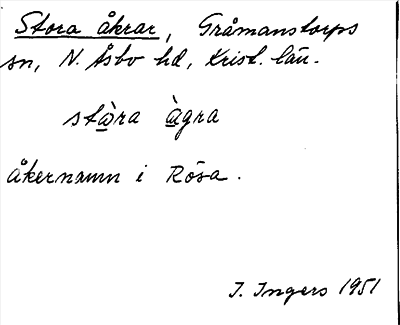 Stora åkrar, Gråmanstorps
sn, N. Åsbo hd, Krist. län.
stàra àgra
åkernamn i Rösa.
I. Ingers 1951